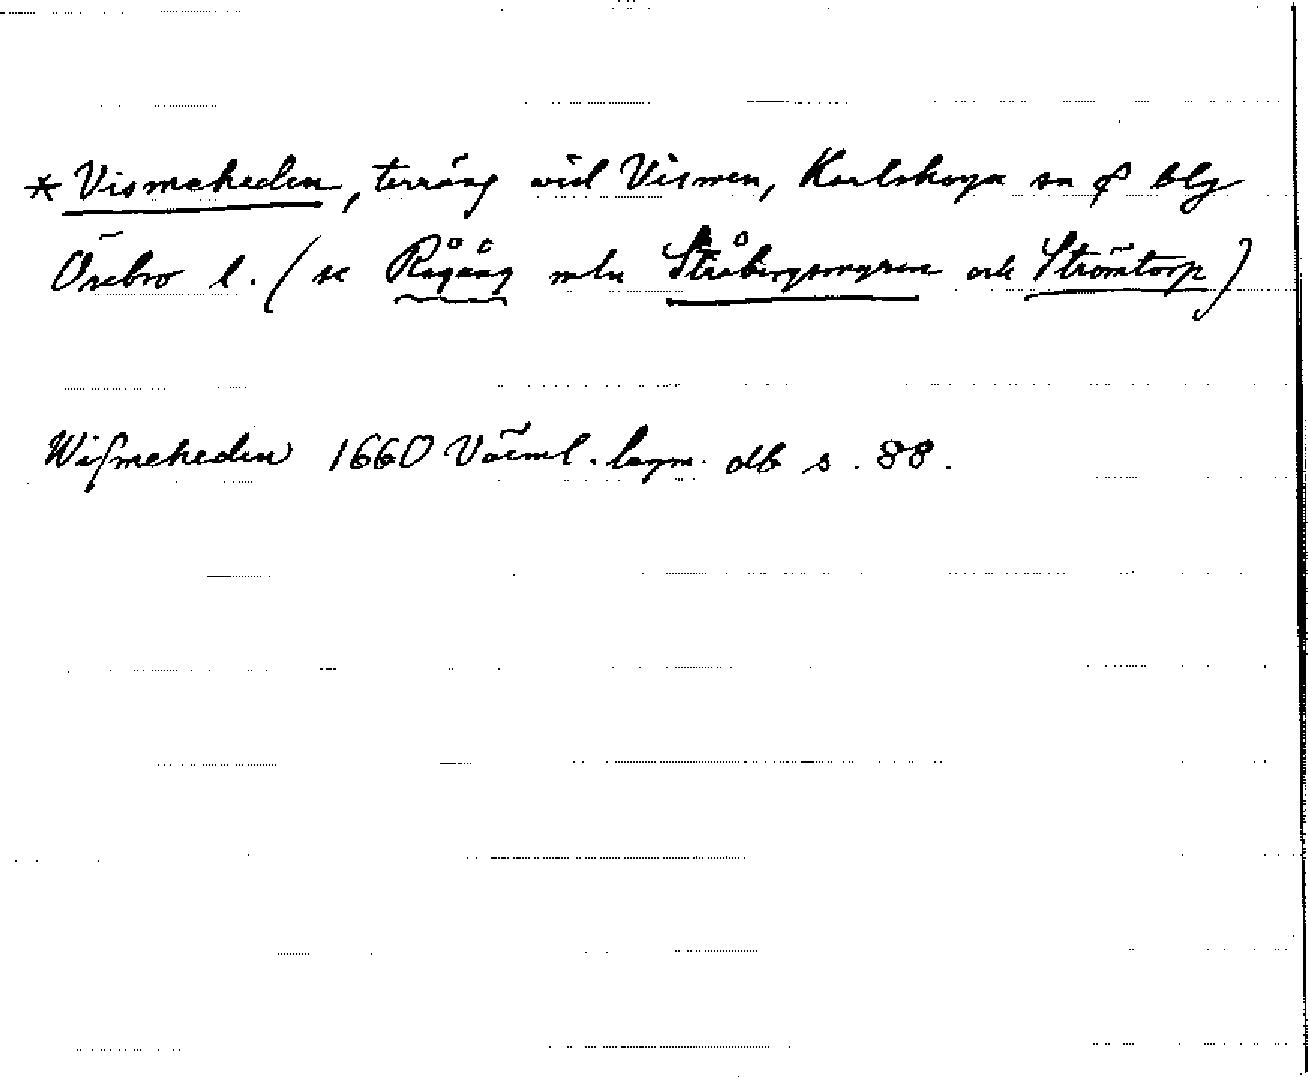 *Vismeheden, terräng vid Vismen, Karlskoga sn o blg
Örebro l. (se Rågång mln Stråbergsmyren och Strömtorp)
Wissmeheden 1660 Värml. lagm. db s. 88.